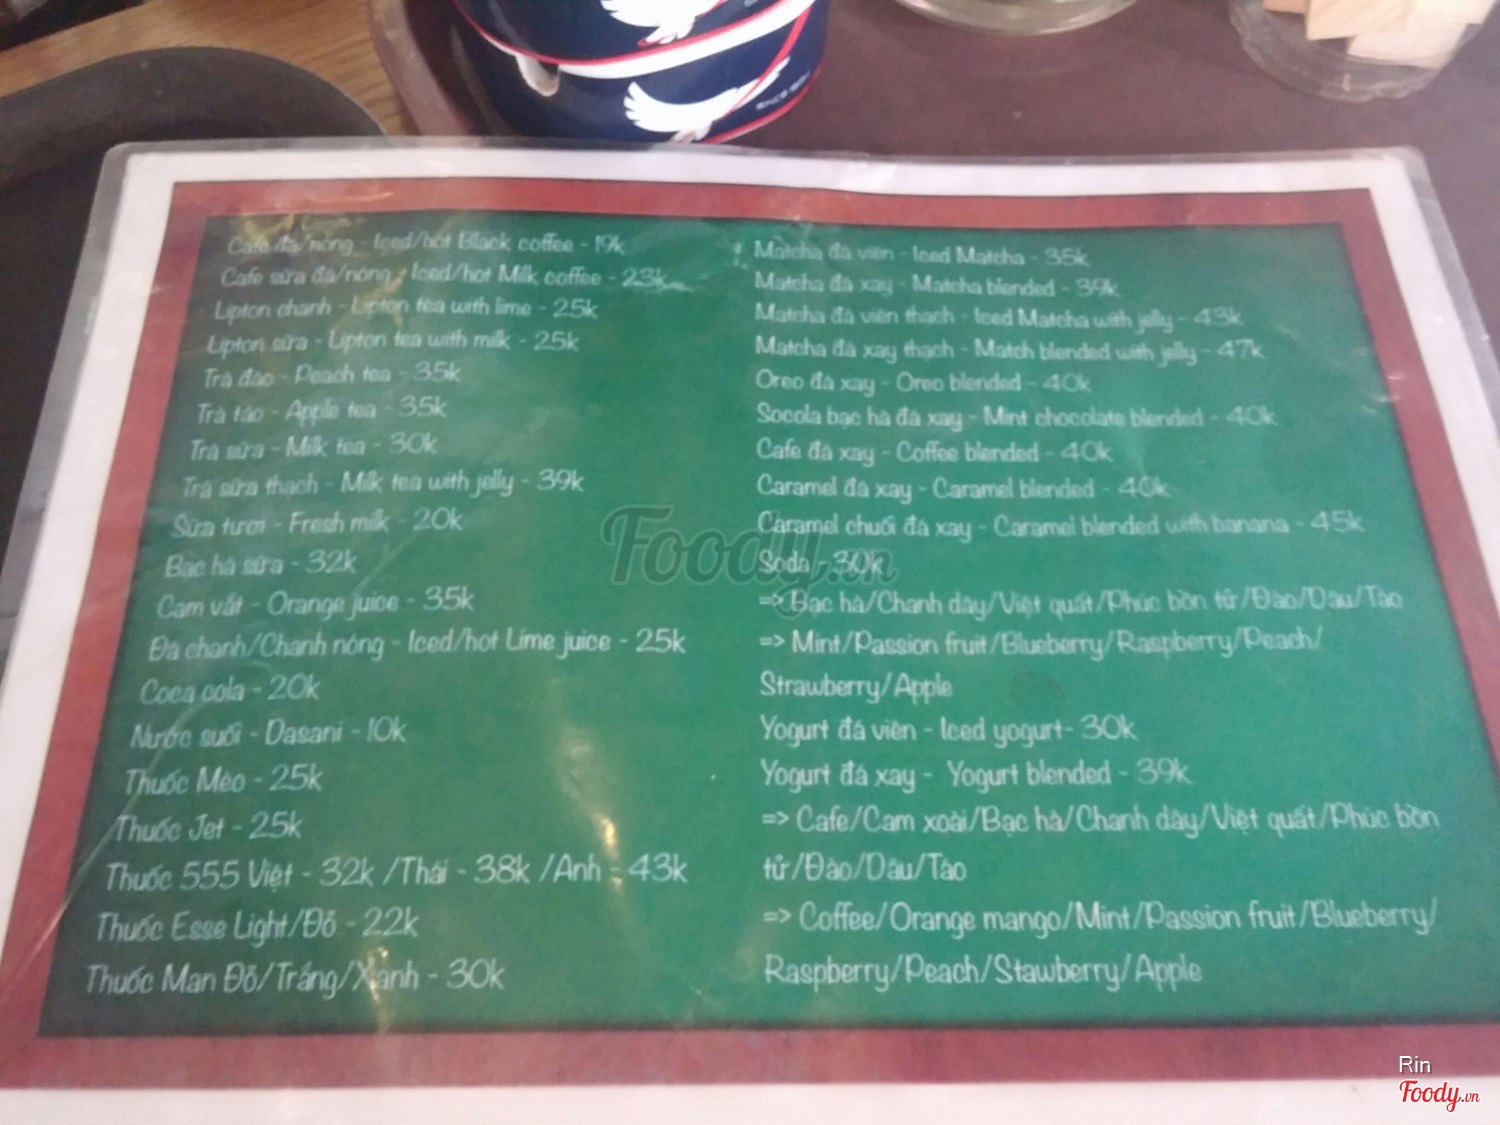 Cafe đá/nóng - Iced/hot Black coffee - 19k
Cafe sữa đá/nóng - Iced/hot Milk coffee - 23k
Lipton chanh - Lipton tea with lime - 25k
Lipton sữa - Lipton tea with milk - 25k
Trà đào - Peach tea - 35k
Trà táo - Apple tea - 35k
Trà sữa - Milk tea - 30k
Trà sữa thạch - Milk tea with jelly - 39k
Sữa tươi - Fresh milk - 20k
Bạc hà sữa - 32k
Cam vắt - Orange juice - 35k
Đá chanh/Chanh nóng - Iced/hot Lime juice - 25k
Coca cola - 20k
Nước suối - Dasani - 10k
Thuốc Mèo - 25k
Thuốc Jet - 25k
Thuốc 555 Việt - 32k /Thái - 38k /Anh - 43k
Thuốc Esse Light/Đỏ - 22k
Thuốc Man Đỏ/Trắng/Xanh - 30k
Matcha đá viên - Iced Matcha - 35k
Matcha đá xay - Matcha blended - 39k
Matcha đá viên thạch - Iced Matcha with jelly - 43k
Matcha đá xay thạch - Match blended with jelly - 47k
Oreo đá xay - Oreo blended - 40k
Socola bạc hà đá xay - Mint chocolate blended - 40k
Cafe đá xay - Coffee blended - 40k
Caramel đá xay - Caramel blended - 40k
Caramel chuối đá xay - Caramel blended with banana - 45k
Soda - 30k
=> Bạc hà/Chanh dây/Việt quất/Phúc bồn tử/Đào/Dâu/Táo
=> Mint/Passion fruit/Blueberry/Raspberry/Peach/
Strawberry/Apple
Yogurt đá viên - Iced yogurt- 30k
Yogurt đá xay - Yogurt blended - 39k
=> Cafe/Cam xoài/Bạc hà/Chanh dây/Việt quất/Phúc bồn
tử/Đào/Dâu/Táo
=> Coffee/Orange mango/Mint/Passion fruit/Blueberry/
Raspberry/Peach/Stawberry/Apple
Foody.vn
Rin
Foody.vn